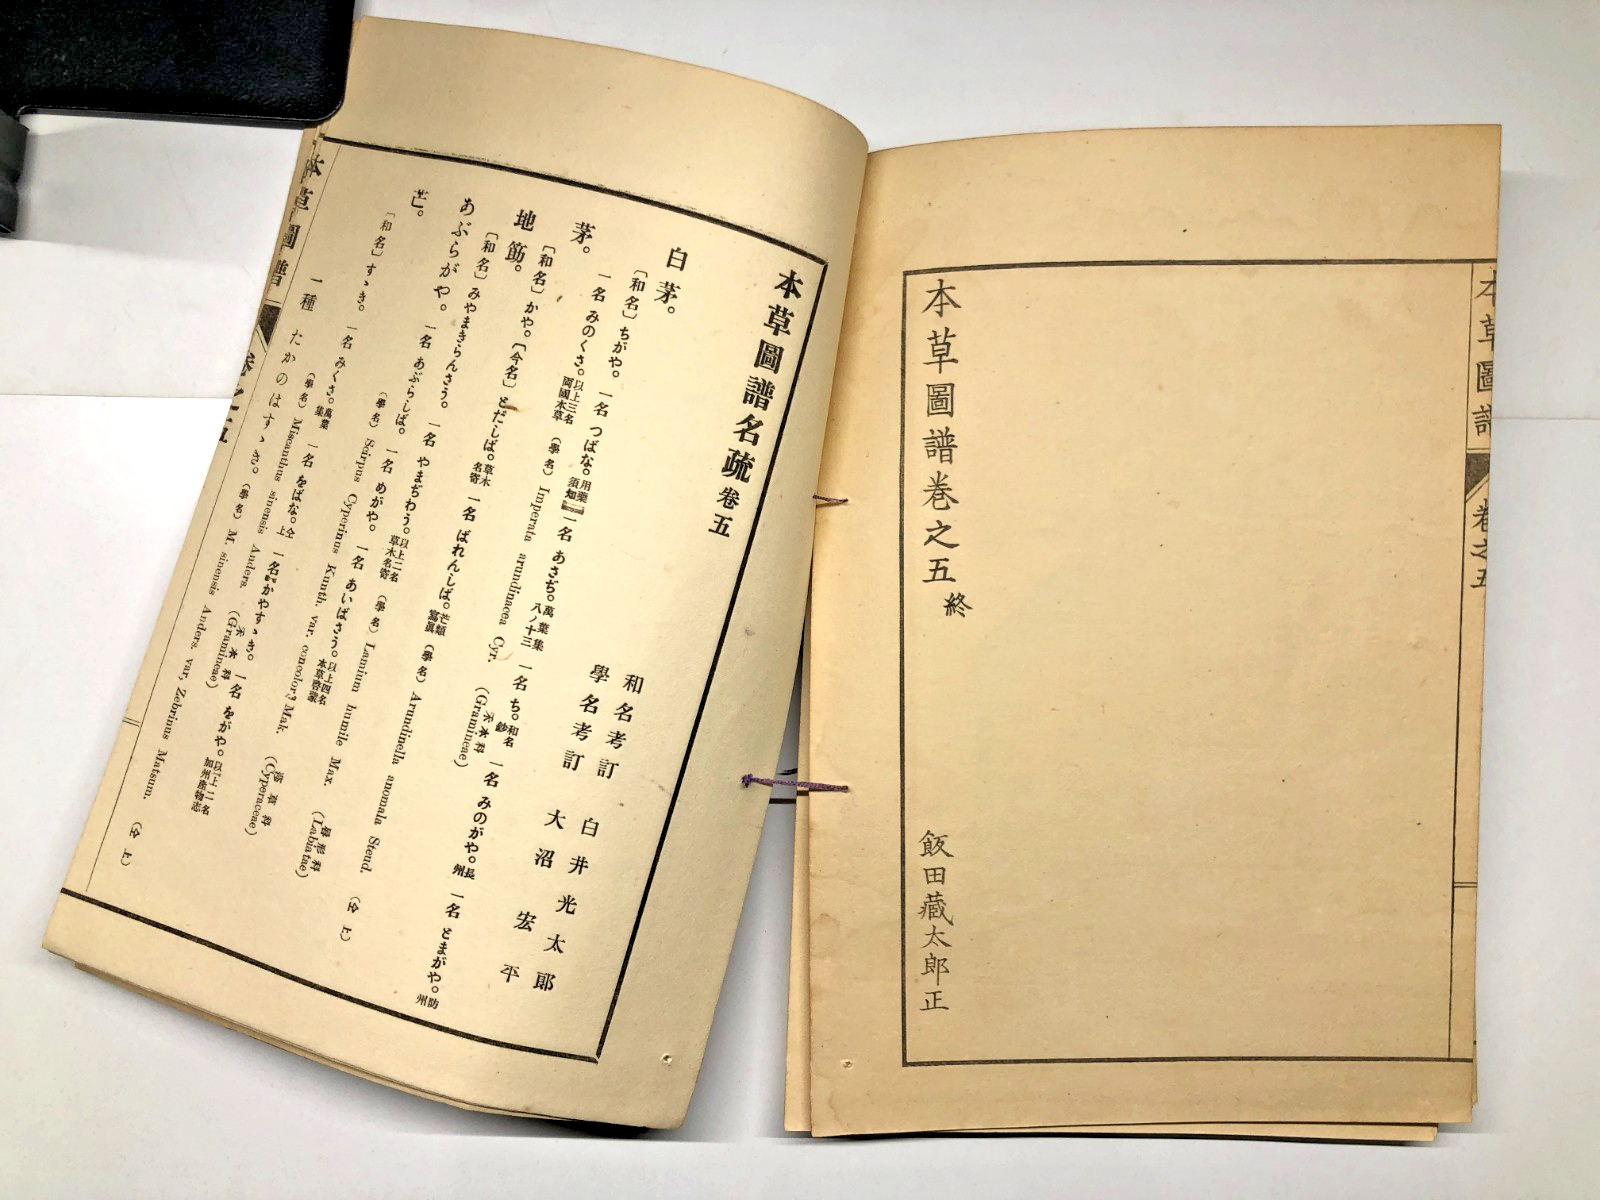 本草圖譜
卷之五
本草圖譜巻之五終
飯田藏太郎正
本草圖譜名疏 卷五
和名考訂 白井光太郎
學名考訂 大沼宏平
白茅。
〔和名〕ちがや。 一名 つばな。用藥須知 一名 あさぢ。萬葉集八ノ十三 一名 ち。和名鈔 一名 みのがや。長州 一名 とまがや。防州
一名 みのくさ。以上三名兩國本草 (學名) Imperata arundinacea Cyr. (禾本科 Gramineae)
茅。
〔和名〕かや。〔今名〕とだしば。草木名寄 一名 ばれんしば。芒類寫眞 (學名) Arundinella anomala Steud. (仝上)
地筋。
〔和名〕みやまきらんさう。 一名 やまぢわう。以上二名草木名寄 (學名) Lamium humile Max. (唇形科 Labiatae)
あぶらがや。 一名 あぶらしば。 一名 めがや。 一名 あいばさう。以上四名本草啓蒙
(學名) Scirpus Cyperinus Kunth. var. concolor, Mak. (莎草科 Cyperaceae)
芒。
〔和名〕すゝき。 一名 みくさ。萬葉集 一名 をばな。仝上 一名 かやすゝき。 一名 をがや。以上二名加州產物志
(學名) Miscanthus sinensis Anders. (禾本科 Gramineae)
一種 たかのはすゝき。(學名) M. sinensis Anders. var, Zebrinus Matsum. (仝上)
本草圖譜
卷之五